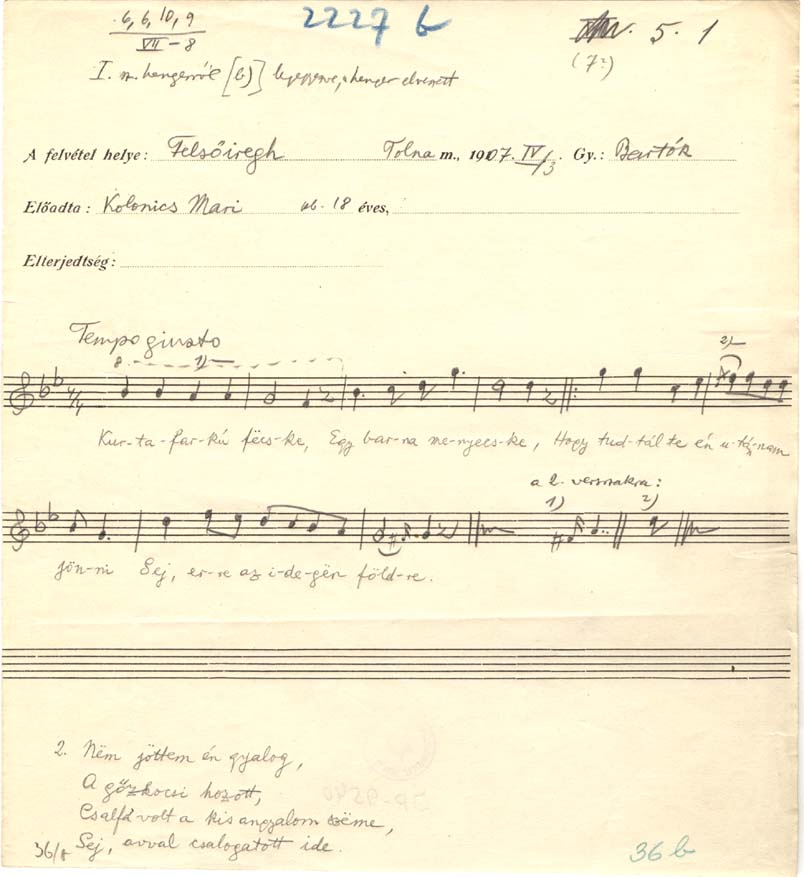 6, 6, 10, 9
VII – 8
2227 b
5. 1
(7?)
I. sz. hengerről [b)] lejegyezve, a henger elveszett
A felvétel helye: Felsőiregh Tolna m., 1907. IV/3. Gy.: Bartók
Előadta: Kolonics Mari kb. 18 éves,
Elterjedtség:
Tempo giusto
8. 1) 2)
4/4
Kur-ta-far-kú fëcs-ke, Egy bar-na me-nyecs-ke, Hogy tud-tál te én u-tá-nam
a 2. versszakra:
1) 2)
jön-ni Sej, er-re az i-de-gën föld-re.
2. Nëm jöttem én gyalog,
A gőzkocsi hozott,
Csalfa volt a kis angyalom szëme,
Sej, avval csalogatott ide.
36/b
36 b